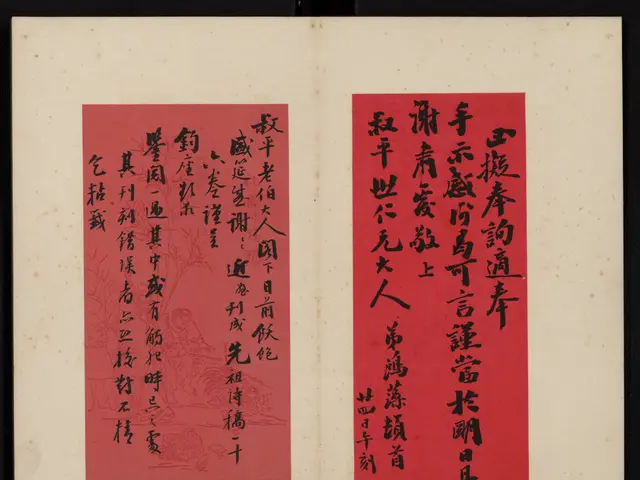 正擬奉詢適奉
手示感可言謹當於明日
謝肅敬上
叔平世仁兄大人
弟鴻藻頓首
廿四日午刻
叔平老伯大人閣下日前飫飽
盛筵謝〻近刊成先祖詩稿一十
六卷謹呈
鈞座
鑒閱其中或有觸犯時忌之處
其刊刻錯誤者亦校對不精
乞粘籤